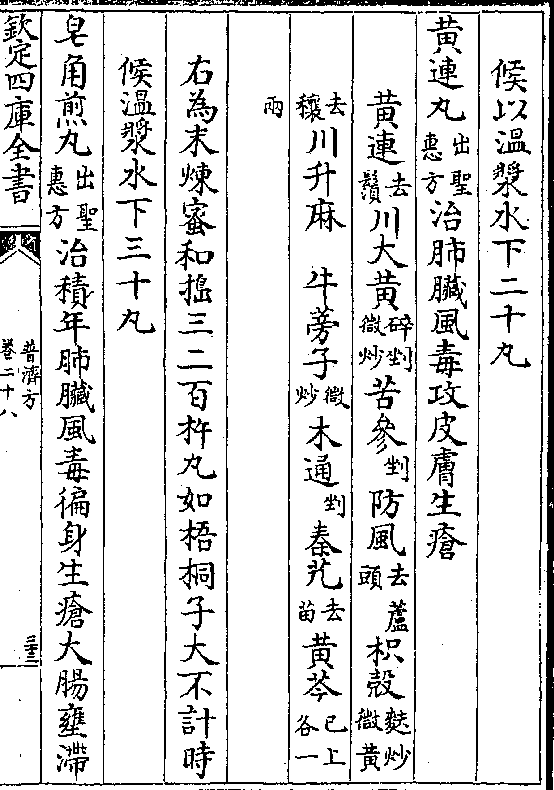 候以温漿水下二十丸
黄連丸出聖惠方治肺臟風毒攻皮膚生瘡
黄連去鬚川大黄碎剉微炒苦參剉防風去蘆頭枳殻麩炒微黄
去穰川升麻牛蒡子微炒木通剉秦艽去苗黄芩已上各一
兩
右為末煉蜜和搗三二百杵丸如梧桐子大不計時
候温漿水下三十丸
皂角煎丸出聖惠方治積年肺臟風毒徧身生瘡大腸壅滯
欽定四庫全書
普濟方
卷二十八
三十三